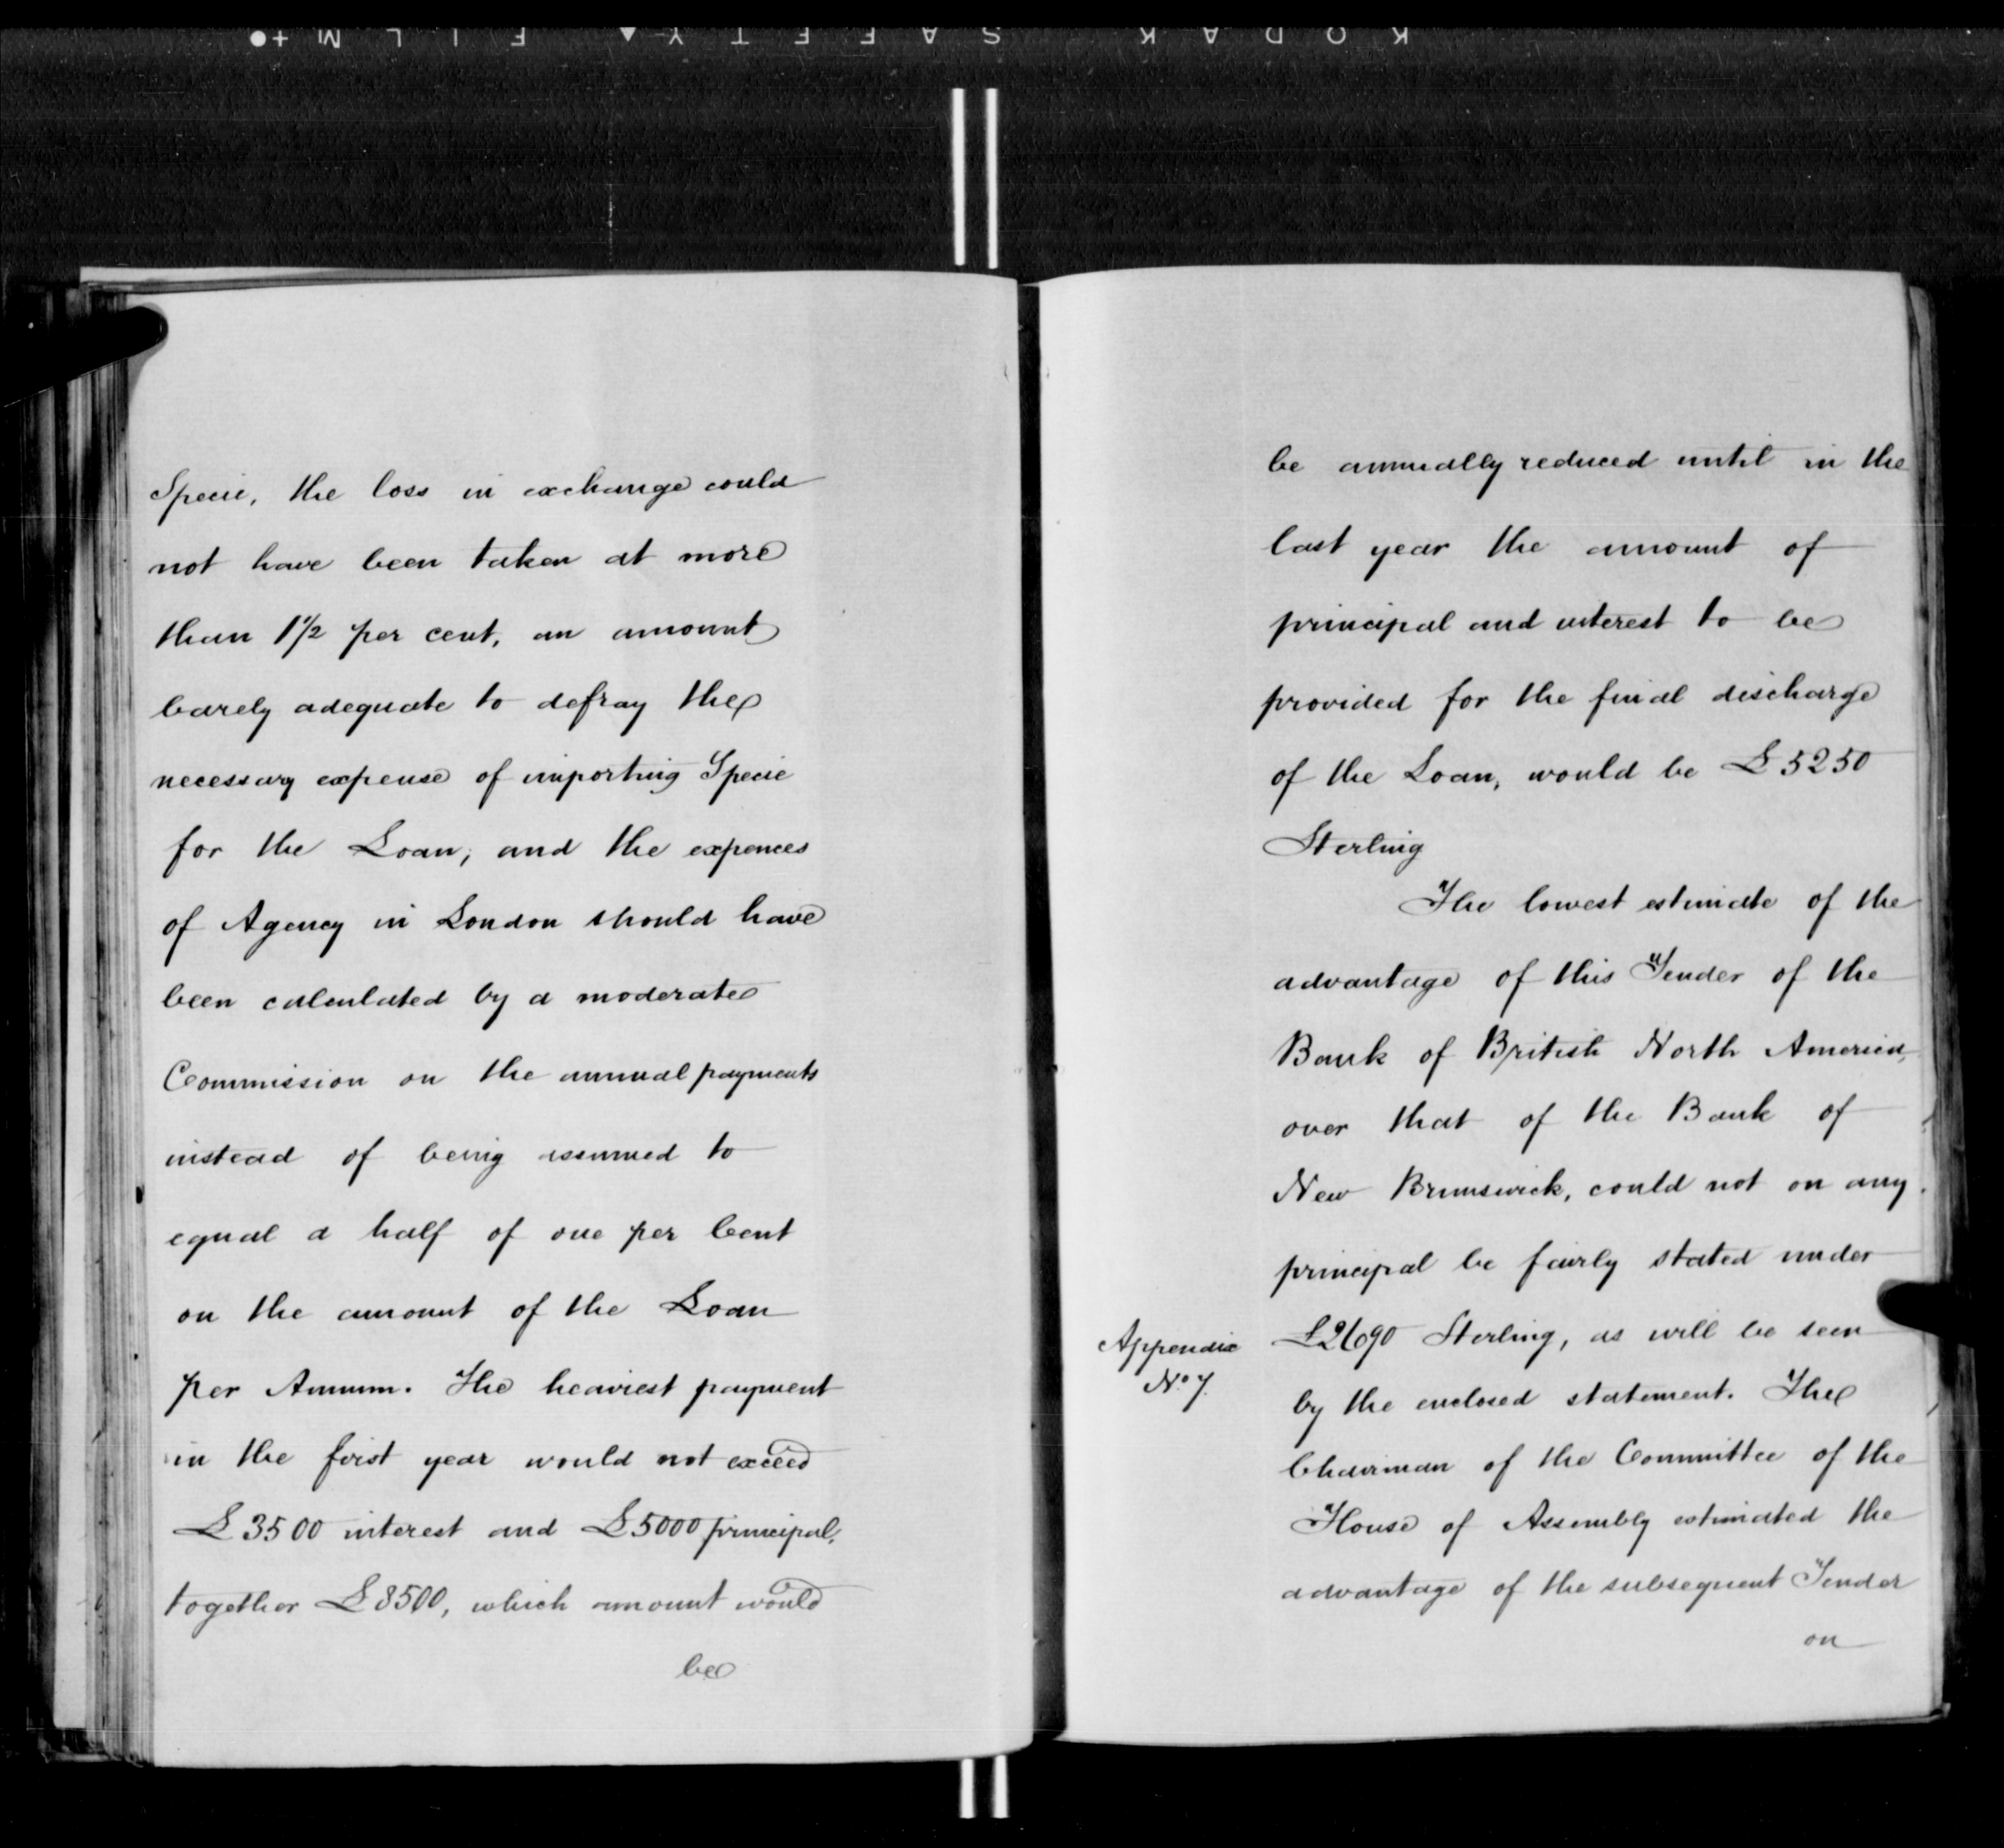 KODAK SAFETY ▲ FILM +●
Specie, the loss in exchange could
not have been taken at more
than 1½ per cent, an amount
barely adequate to defray the
necessary expense of importing Specie
for the Loan; and the expences
of Agency in London should have
been calculated by a moderate
Commission on the annual payments
instead of being assumed to
equal a half of one per Cent
on the amount of the Loan
per Annum. The heaviest payment
in the first year would not exceed
£3500 interest and £5000 principal,
together £8500, which amount would
be
be annually reduced until in the
last year the amount of
principal and interest to be
provided for the final discharge
of the Loan, would be £5250
Sterling
The lowest estimate of the
advantage of this Tender of the
Bank of British North America,
over that of the Bank of
New Brunswick, could not on any
principal be fairly stated under
£2690 Sterling, as will be seen
Appendix
No 7.
by the enclosed statement. The
Chairman of the Committee of the
House of Assembly estimated the
advantage of the subsequent Tender
on